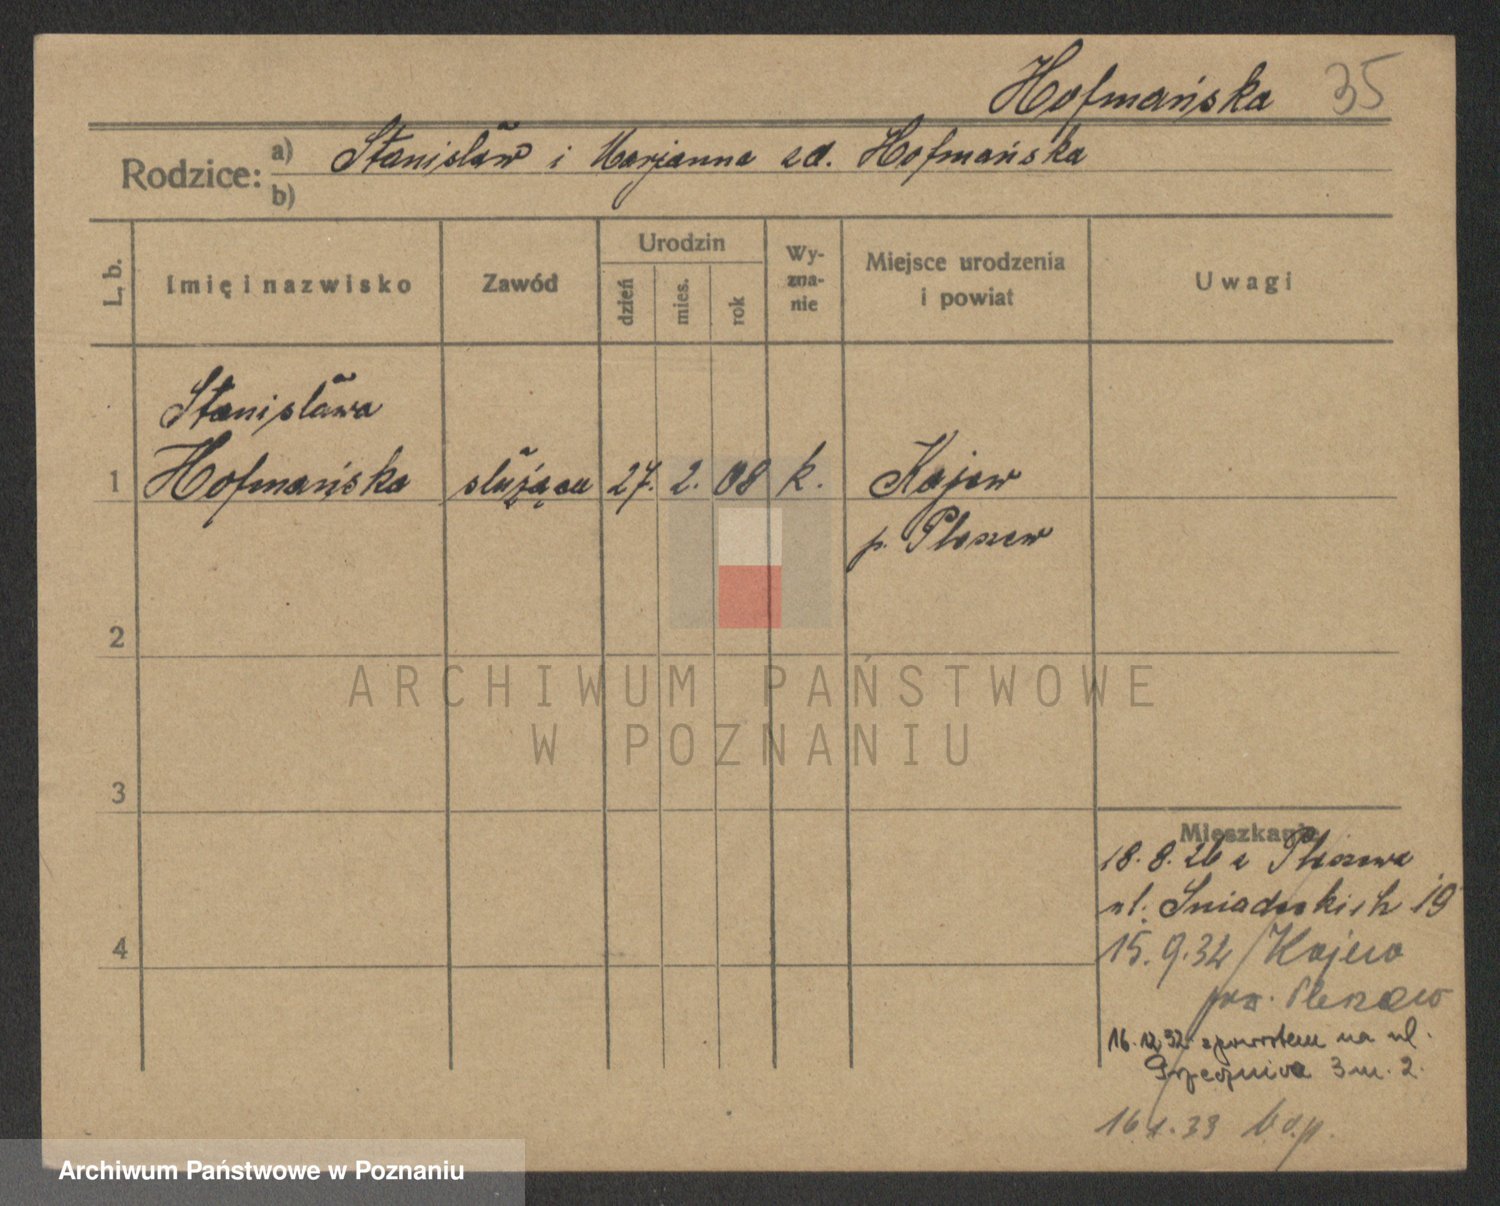 Hofmańska 35
Rodzice: a) Stanisław i Marjanna zd. Hofmańska
b)
L. b. Imię i nazwisko Zawód Urodzin dzień mies. rok Wy-zna-nie Miejsce urodzenia i powiat Uwagi
Stanisława
1 Hofmańska służąca 27. 2. 08 k. Kajew
p. Pleszew
2
ARCHIWUM PAŃSTWOWE
W POZNANIU
3
Mieszkanie
18. 8. 26 z Pleszewa
ul. Śniadeckich 19
4
15. 9. 32 Kajew
pow. Pleszew
16. 12 32 zpowrotem na ul.
3 m. 2.
16. 1. 33
Archiwum Państwowe w Poznaniu